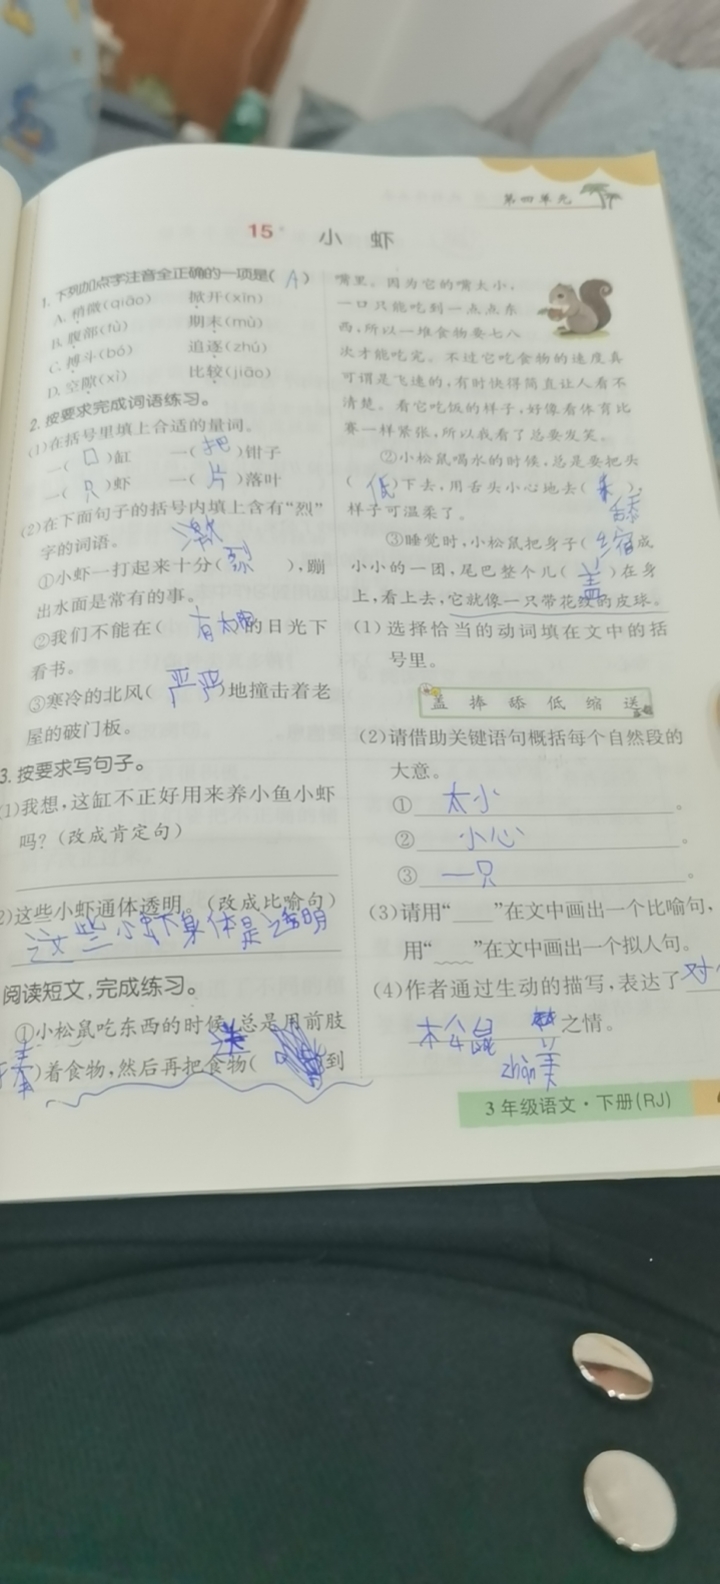 第四单元
15* 小 虾
1. 下列加点字注音全正确的一项是( A )
A. 稍微(qiāo) 掀开(xīn)
B. 腹部(fù) 期末(mù)
C. 搏斗(bó) 追逐(zhú)
D. 空隙(xì) 比较(jiāo)
2. 按要求完成词语练习。
(1)在括号里填上合适的量词。
一( 口 )缸 一( 把 )钳子
一( 只 )虾 一( 片 )落叶
(2)在下面句子的括号内填上含有“烈”
字的词语。
①小虾一打起来十分( 激烈 ),蹦
出水面是常有的事。
②我们不能在( 有太阳 )的日光下
看书。
③寒冷的北风( 严严 )地撞击着老
屋的破门板。
3. 按要求写句子。
(1)我想,这缸不正好用来养小鱼小虾
吗?(改成肯定句)
(2)这些小虾通体透明。(改成比喻句)
这些小虾身体是透明
阅读短文,完成练习。
①小松鼠吃东西的时候,总是用前肢
(捧)着食物,然后再把食物( 送 )到
嘴里。因为它的嘴太小,
一口只能吃到一点点东
西,所以一堆食物要七八
次才能吃完。不过它吃食物的速度真
可谓是飞速的,有时快得简直让人看不
清楚。看它吃饭的样子,好像看体育比
赛一样紧张,所以我看了总要发笑。
②小松鼠喝水的时候,总是要把头
( 低 )下去,用舌头小心地去( 舔 ),
样子可温柔了。
③睡觉时,小松鼠把身子( 缩 )成
小小的一团,尾巴整个儿( 盖 )在身
上,看上去,它就像一只带花纹的皮球。
(1)选择恰当的动词填在文中的括
号里。
盖 捧 舔 低 缩 送
(2)请借助关键语句概括每个自然段的
大意。
① 太小 。
② 小心 。
③ 一只 。
(3)请用“____”在文中画出一个比喻句,
用“﹏﹏”在文中画出一个拟人句。
(4)作者通过生动的描写,表达了 对
松鼠 美 之情。
zhàn
3年级语文·下册(RJ)